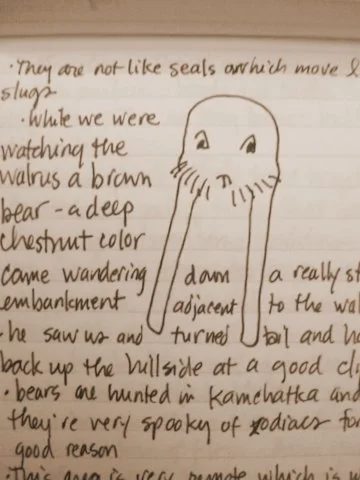 · They are not like seals which move l
slugs
· While we were
watching the
walrus a brown
bear - a deep
chestnut color
came wandering down a really st
embankment adjacent to the wal
· he saw us and turned tail and ha
back up the hillside at a good cli
· bears are hunted in Kamchatka and
they're very spooky of zodiacs for
good reason
· This area is very remote which is